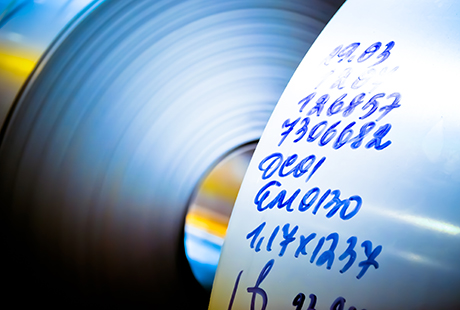 09.03
126857
7306682
DC01
EM0130
1,17x1237